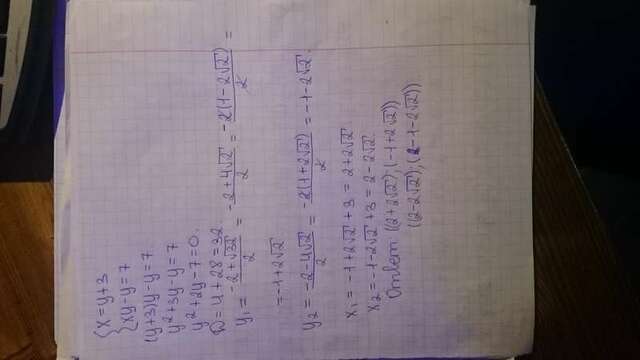 {x=y+3
{xy-y=7
(y+3)y-y=7
y²+3y-y=7
y²+2y-7=0.
D=4+28=32
y₁= (-2+√32)/2 = (-2+4√2)/2 = -2(1-2√2)/2 =
=-1+2√2
y₂= (-2-4√2)/2 = -2(1+2√2)/2 = -1-2√2.
x₁=-1+2√2+3=2+2√2
x₂=-1-2√2+3=2-2√2.
Ответ ((2+2√2);(-1+2√2))
((2-2√2);(-1-2√2))